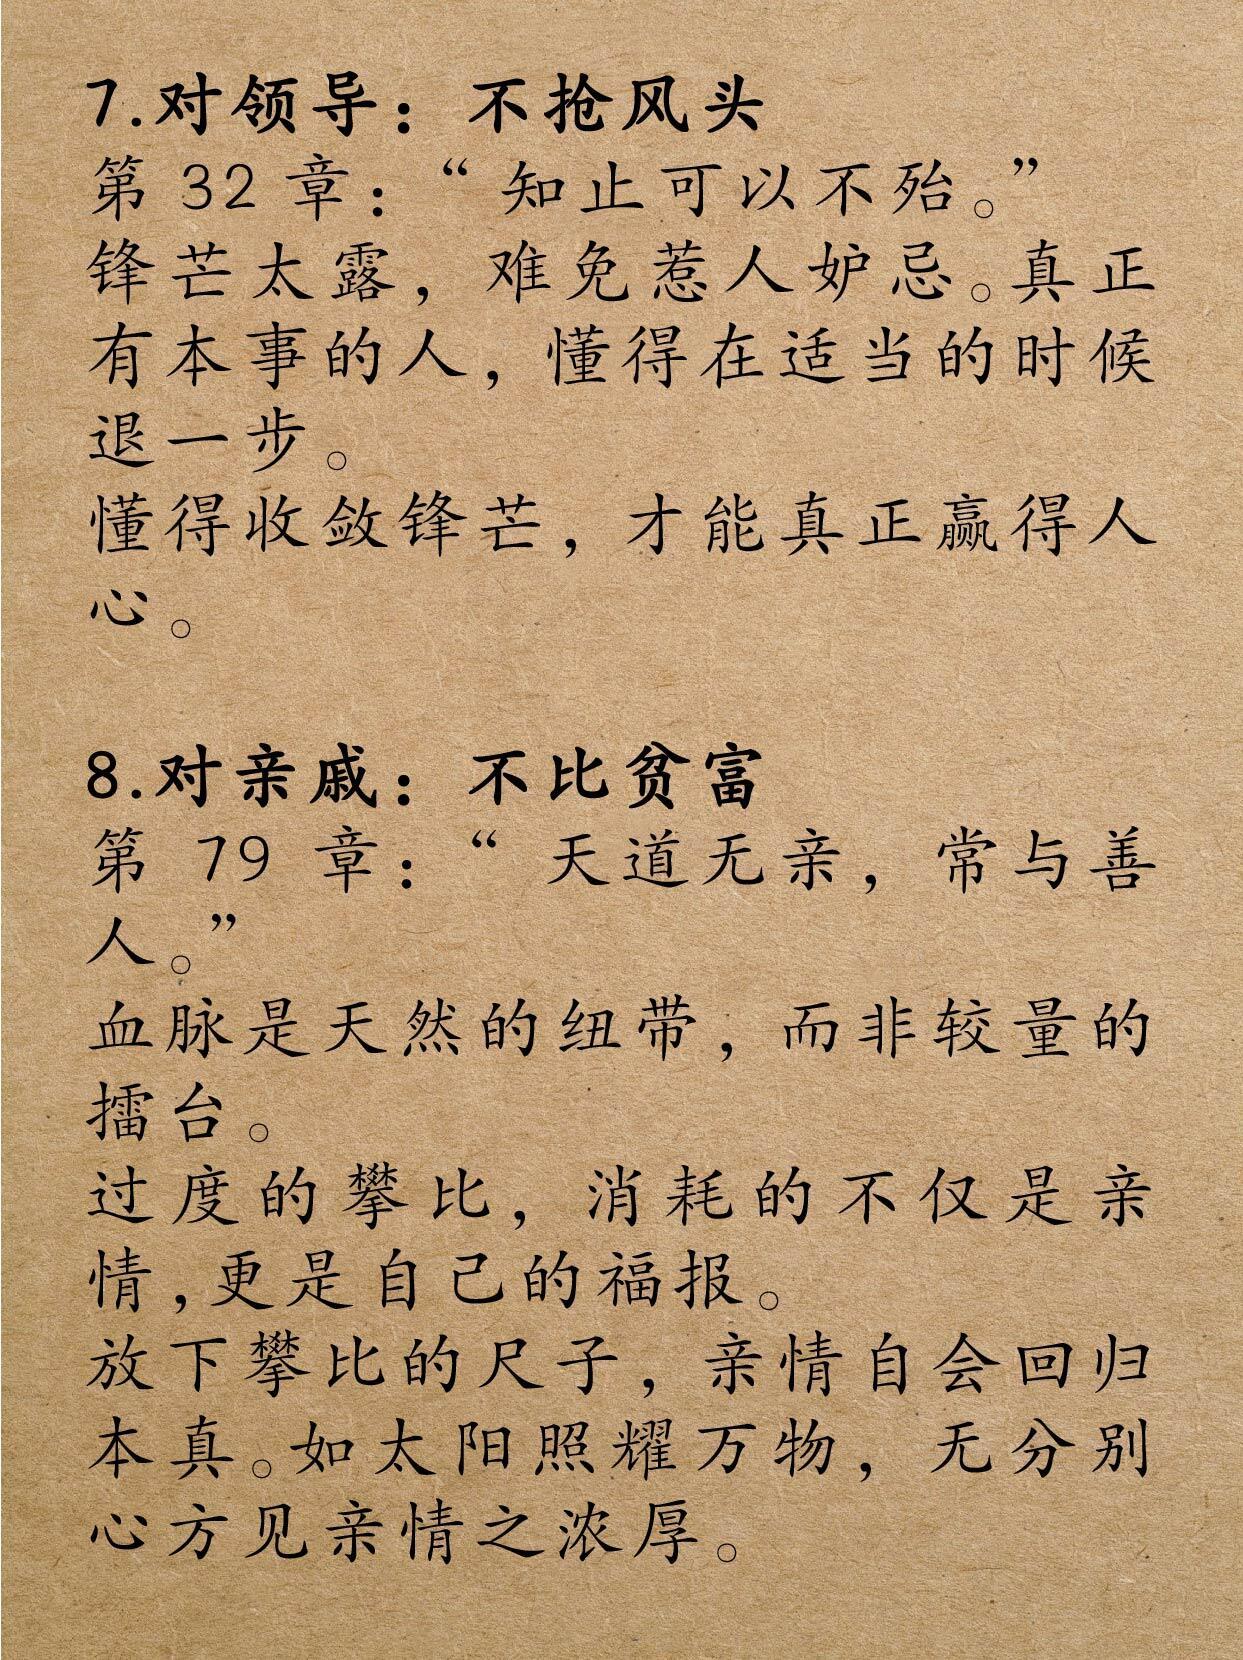 7.对领导：不抢风头
第 32 章：“知止可以不殆。”
锋芒太露，难免惹人妒忌。真正
有本事的人，懂得在适当的时候
退一步。
懂得收敛锋芒，才能真正赢得人
心。
8.对亲戚：不比贫富
第 79 章：“天道无亲，常与善
人。”
血脉是天然的纽带，而非较量的
擂台。
过度的攀比，消耗的不仅是亲
情，更是自己的福报。
放下攀比的尺子，亲情自会回归
本真。如太阳照耀万物，无分别
心方见亲情之浓厚。